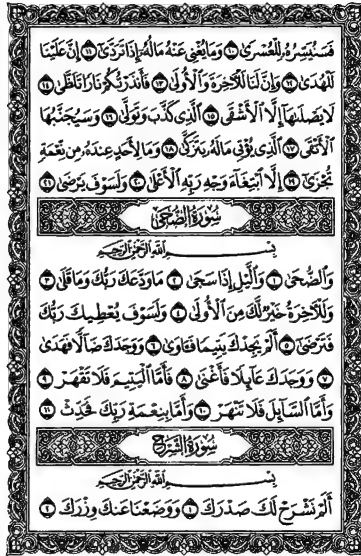 فَسَنُيَسِّرُهُۥ لِلْعُسْرَىٰ ١٠ وَمَا يُغْنِى عَنْهُ مَالُهُۥٓ إِذَا تَرَدَّىٰٓ ١١ إِنَّ عَلَيْنَا
لَلْهُدَىٰ ١٢ وَإِنَّ لَنَا لَلْـَٔاخِرَةَ وَٱلْأُولَىٰ ١٣ فَأَنذَرْتُكُمْ نَارًا تَلَظَّىٰ ١٤
لَا يَصْلَىٰهَآ إِلَّا ٱلْأَشْقَى ١٥ ٱلَّذِى كَذَّبَ وَتَوَلَّىٰ ١٦ وَسَيُجَنَّبُهَا
ٱلْأَتْقَى ١٧ ٱلَّذِى يُؤْتِى مَالَهُۥ يَتَزَكَّىٰ ١٨ وَمَا لِأَحَدٍ عِندَهُۥ مِن نِّعْمَةٍ
تُجْزَىٰٓ ١٩ إِلَّا ٱبْتِغَآءَ وَجْهِ رَبِّهِ ٱلْأَعْلَىٰ ٢٠ وَلَسَوْفَ يَرْضَىٰ ٢١
سُورَةُ الضُّحَىٰ
بِسْمِ ٱللَّهِ ٱلرَّحْمَٰنِ ٱلرَّحِيمِ
وَٱلضُّحَىٰ ١ وَٱلَّيْلِ إِذَا سَجَىٰ ٢ مَا وَدَّعَكَ رَبُّكَ وَمَا قَلَىٰ ٣
وَلَلْـَٔاخِرَةُ خَيْرٌ لَّكَ مِنَ ٱلْأُولَىٰ ٤ وَلَسَوْفَ يُعْطِيكَ رَبُّكَ
فَتَرْضَىٰٓ ٥ أَلَمْ يَجِدْكَ يَتِيمًا فَـَٔاوَىٰ ٦ وَوَجَدَكَ ضَآلًّا فَهَدَىٰ
٧ وَوَجَدَكَ عَآئِلًا فَأَغْنَىٰ ٨ فَأَمَّا ٱلْيَتِيمَ فَلَا تَقْهَرْ ٩
وَأَمَّا ٱلسَّآئِلَ فَلَا تَنْهَرْ ١٠ وَأَمَّا بِنِعْمَةِ رَبِّكَ فَحَدِّثْ ١١
سُورَةُ الشَّرْحِ
بِسْمِ ٱللَّهِ ٱلرَّحْمَٰنِ ٱلرَّحِيمِ
أَلَمْ نَشْرَحْ لَكَ صَدْرَكَ ١ وَوَضَعْنَا عَنكَ وِزْرَكَ ٢